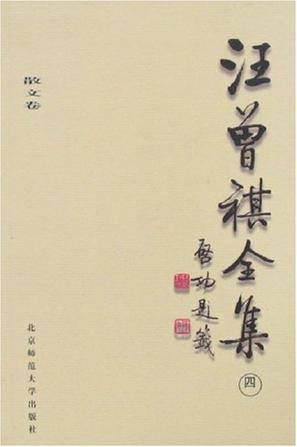 汪曾祺全集
四
启功题签
散文卷
北京师范大学出版社